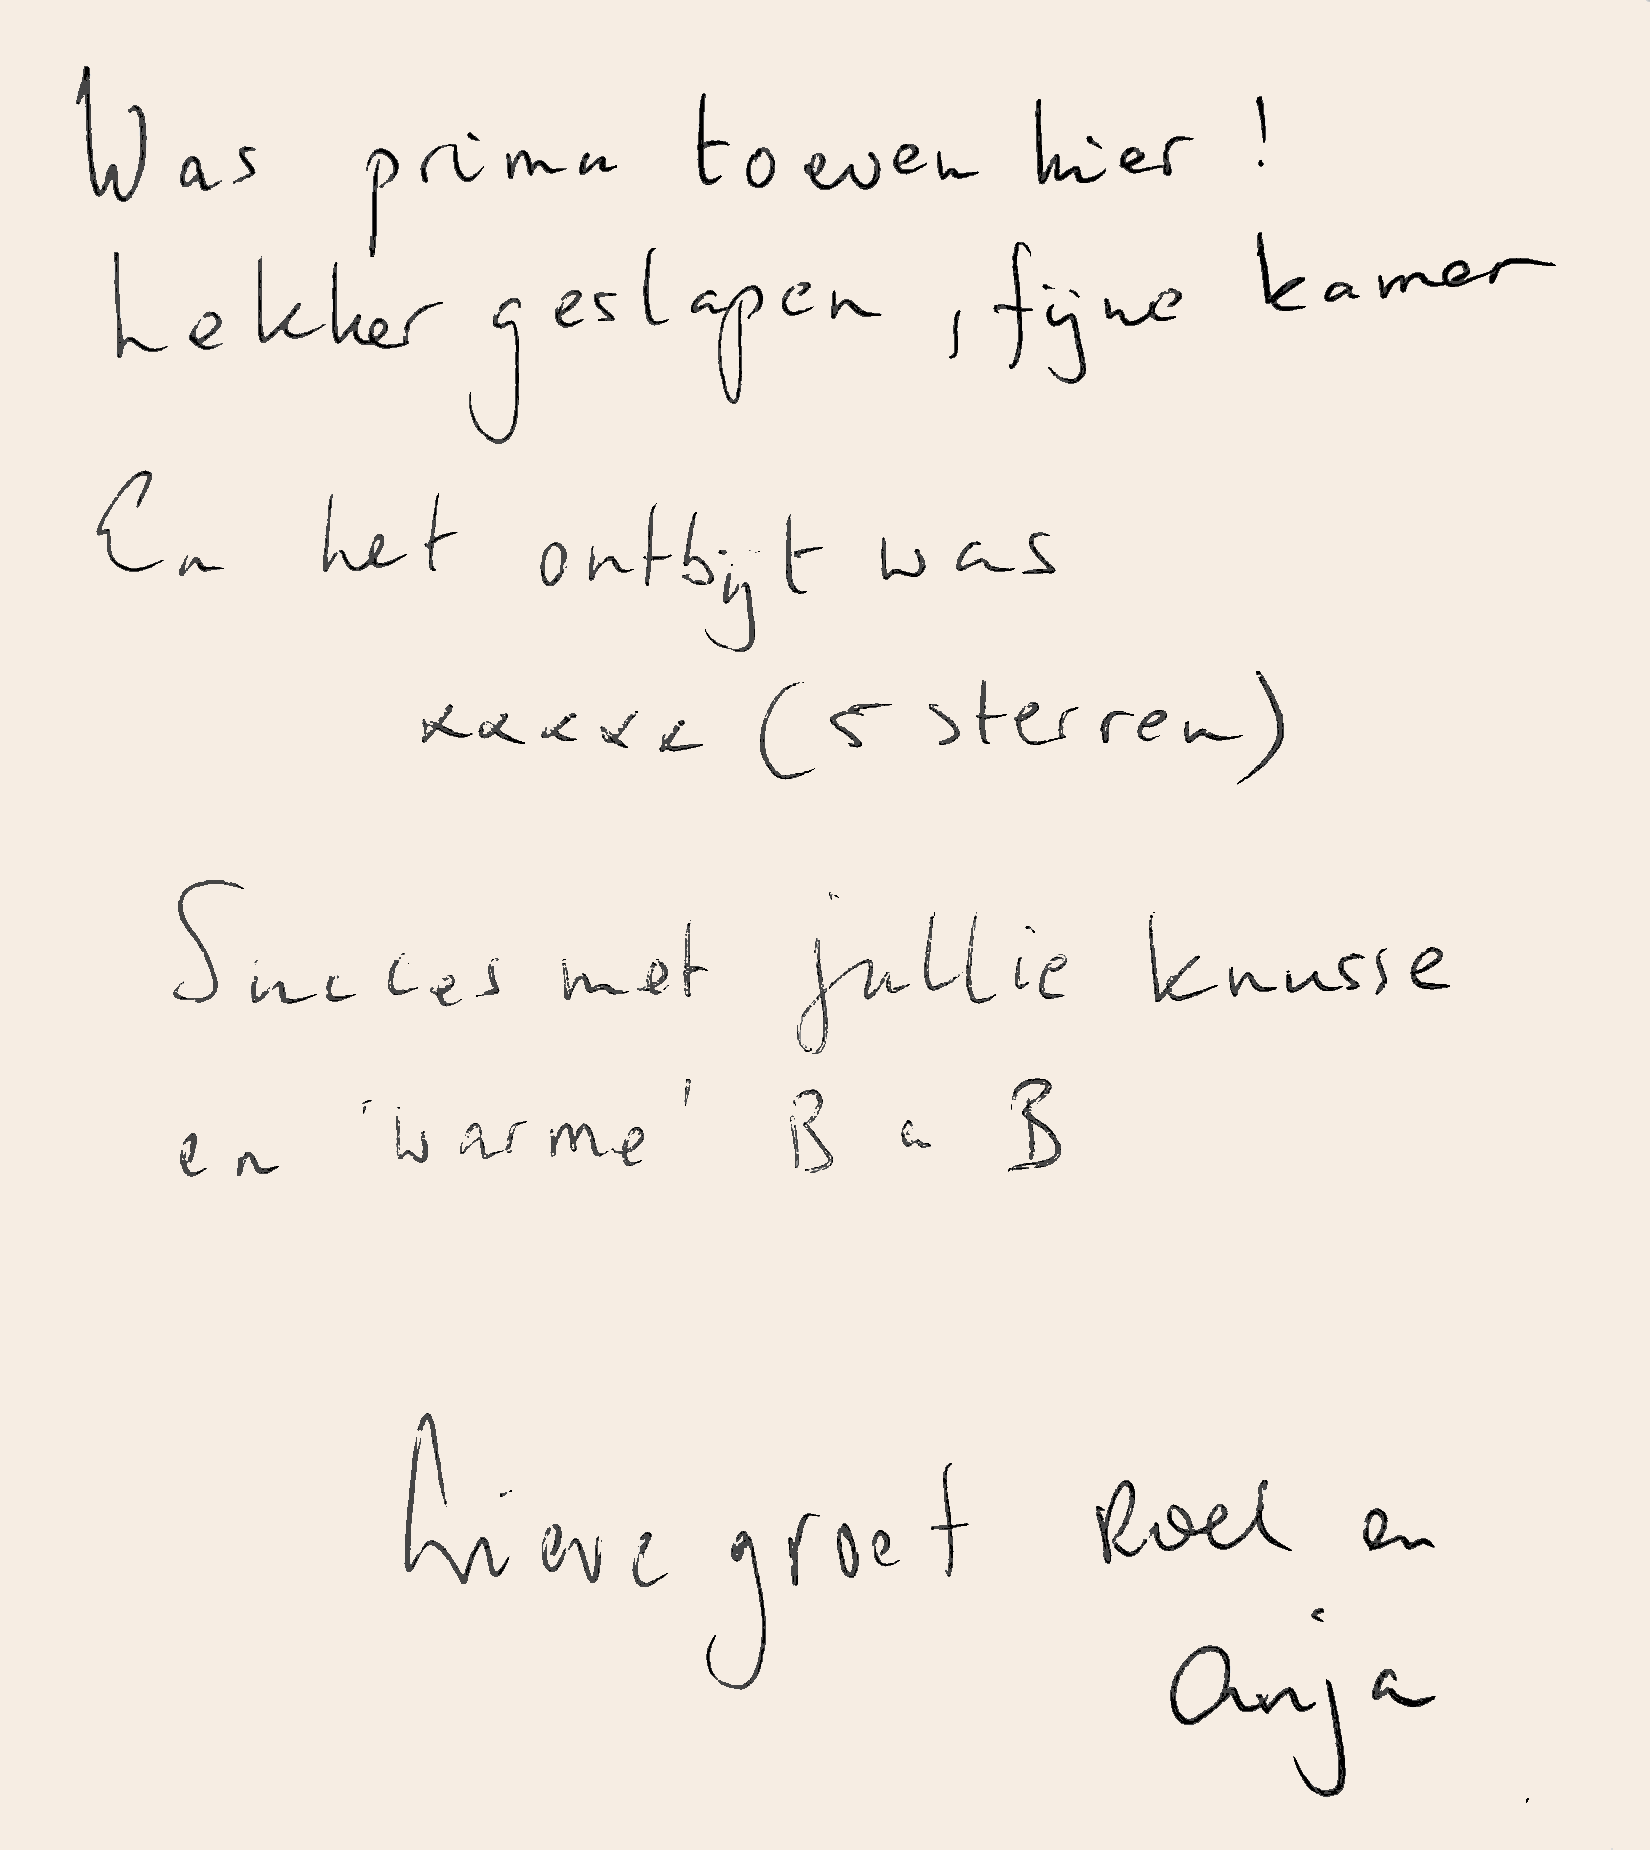 Was prima toeven hier !
Lekker geslapen , fijne kamer
En het ontbijt was
xxxxx (5 sterren)
Succes met jullie knusse
en 'warme' B a B
Lieve groet Roel en
Anja